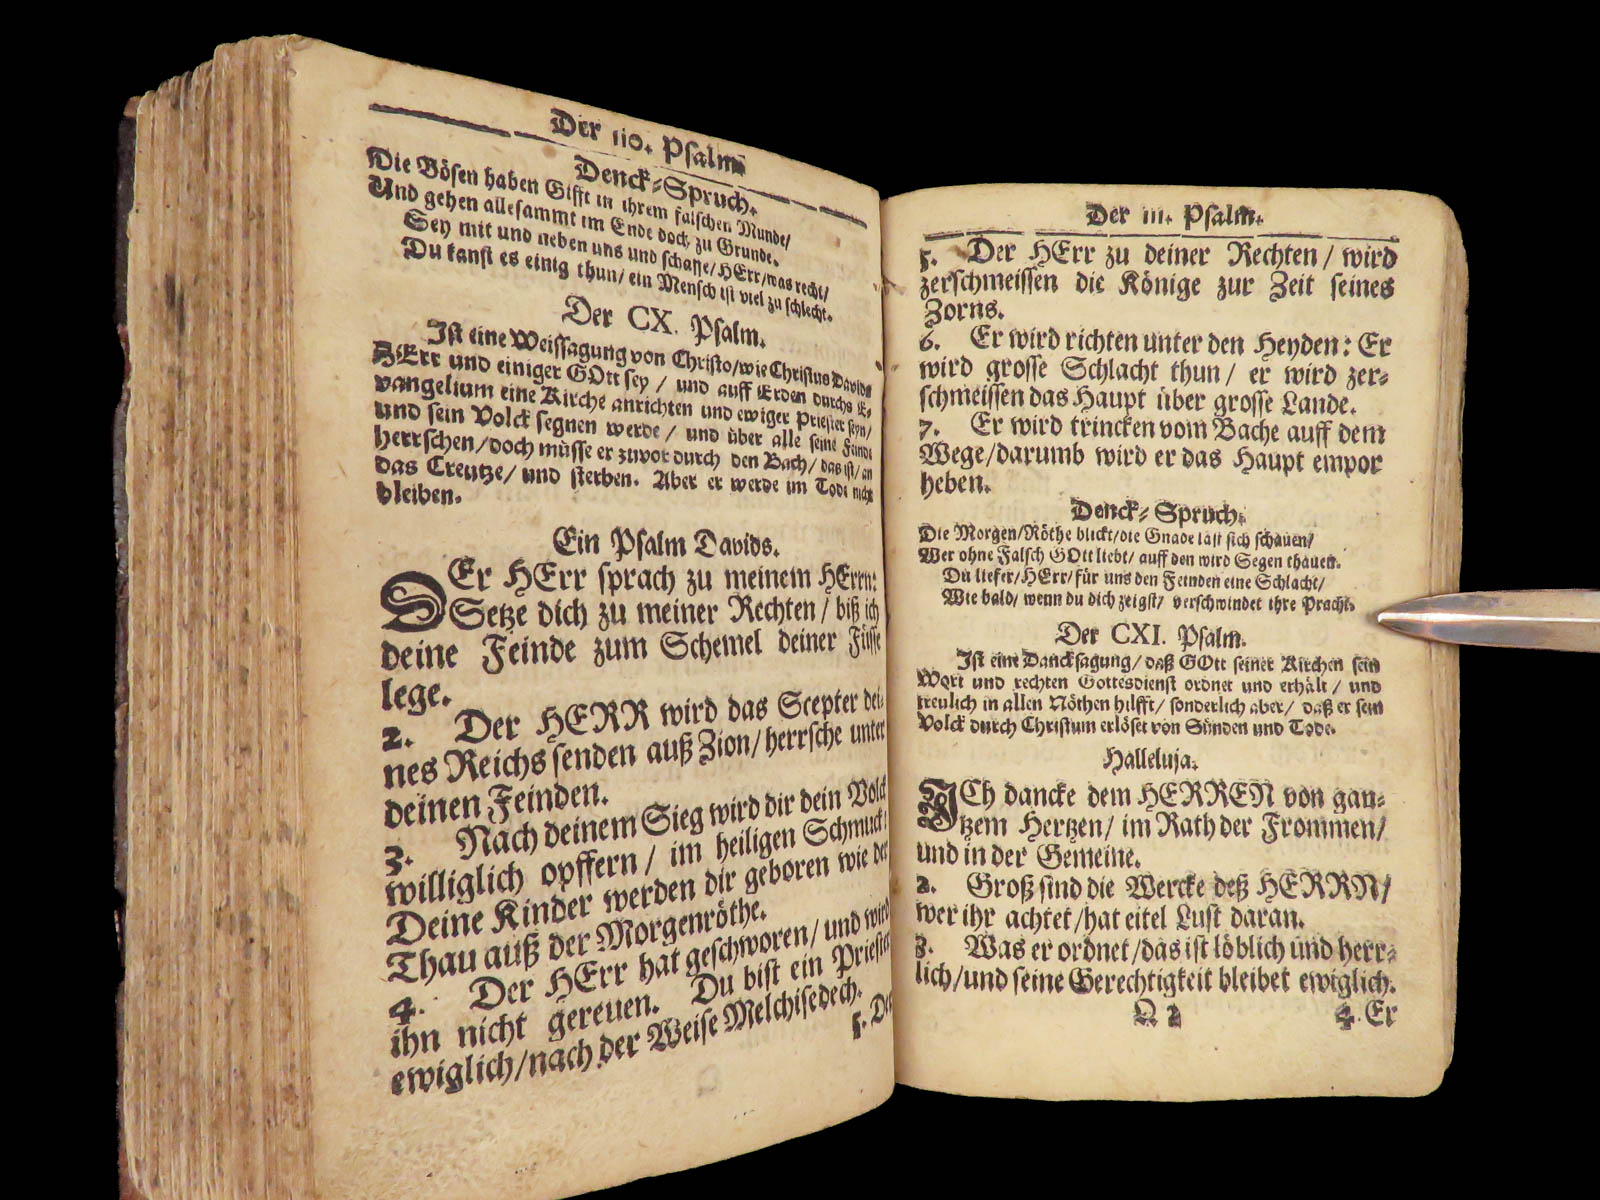 Der 110. Psalm.
Denck-Spruch.
Die Bösen haben Gifft in ihrem falschen Munde/
Und gehen allesammt im Ende doch zu Grunde.
Sey mit und neben uns und schaffe/HErr/was recht/
Du kanst es einig thun/ ein Mensch ist viel zu schlecht.
Der CX. Psalm.
Ist eine Weissagung von Christo/wie Christus Davids
HErr und einiger GOtt sey / und auff Erden durchs E-
vangelium eine Kirche anrichten und ewiger Priester seyn/
und sein Volck segnen werde / und über alle seine Feinde
herrschen/doch müsse er zuvor durch den Bach/ das ist/ an
das Creutze/ und sterben. Aber er werde im Tode nicht
bleiben.
Ein Psalm Davids.
DEr HErr sprach zu meinem HErrn:
Setze dich zu meiner Rechten / biß ich
deine Feinde zum Schemel deiner Füsse
lege.
2. Der HERR wird das Scepter dei-
nes Reichs senden auß Zion/ herrsche unter
deinen Feinden.
3. Nach deinem Sieg wird dir dein Volck
williglich opffern / im heiligen Schmuck:
Deine Kinder werden dir geboren wie der
Thau auß der Morgenröthe.
4. Der HErr hat geschworen/ und wird
ihn nicht gereuen. Du bist ein Priester
ewiglich/nach der Weise Melchisedech.
5. Der
Der 111. Psalm.
5. Der HErr zu deiner Rechten / wird
zerschmeissen die Könige zur Zeit seines
Zorns.
6. Er wird richten unter den Heyden: Er
wird grosse Schlacht thun / er wird zer-
schmeissen das Haupt über grosse Lande.
7. Er wird trincken vom Bache auff dem
Wege/darumb wird er das Haupt empor
heben.
Denck-Spruch.
Die Morgen/Röthe blickt/die Gnade läst sich schauen/
Wer ohne Falsch GOtt liebt/ auff den wird Segen thauen.
Du liefer/HErr/für uns den Feinden eine Schlacht/
Wie bald/ wenn du dich zeigst/ verschwindet ihre Pracht.
Der CXI. Psalm.
Ist eine Dancksagung/ daß GOtt seiner Kirchen sein
Wort und rechten Gottesdienst ordnet und erhält / und
treulich in allen Nöthen hilfft/ sonderlich aber/ daß er sein
Volck durch Christum erlöset von Sünden und Tode.
Halleluja.
ICh dancke dem HERREN von gan-
tzem Hertzen/ im Rath der Frommen/
und in der Gemeine.
2. Groß sind die Wercke deß HERRN/
wer ihr achtet/hat eitel Lust daran.
3. Was er ordnet/das ist löblich und herr-
lich/und seine Gerechtigkeit bleibet ewiglich.
Q 2 4. Er